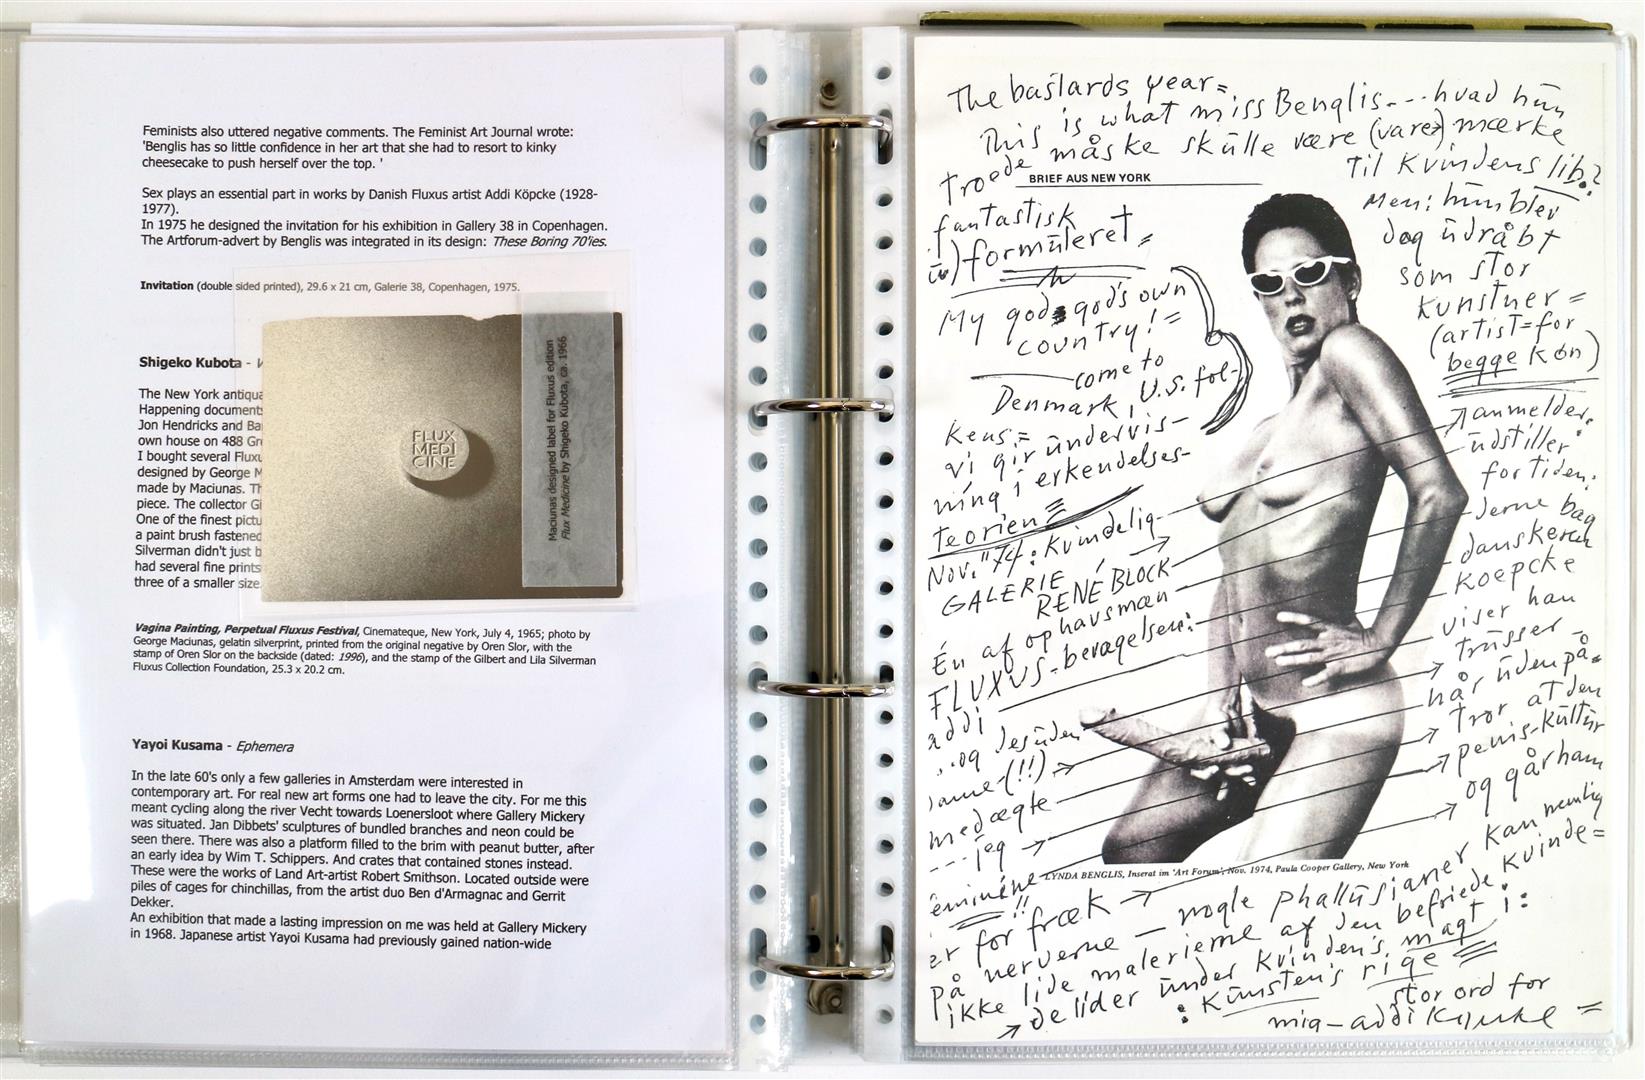 Feminists also uttered negative comments. The Feminist Art Journal wrote:
'Benglis has so little confidence in her art that she had to resort to kinky
cheesecake to push herself over the top. '
Sex plays an essential part in works by Danish Fluxus artist Addi Köpcke (1928-
1977).
In 1975 he designed the invitation for his exhibition in Gallery 38 in Copenhagen.
The Artforum-advert by Benglis was integrated in its design: These Boring 70'ies.
Invitation (double sided printed), 29.6 x 21 cm, Galerie 38, Copenhagen, 1975.
Shigeko Kubota -
The New York antiqua
Happening documents
Jon Hendricks and Ba
own house on 488 Gr
I bought several Fluxu
designed by George M
made by Maciunas. Th
piece. The collector Gi
One of the finest pictu
a paint brush fastened
Silverman didn't just b
had several fine prints
three of a smaller size
FLUX
MEDI
CINE
Maciunas designed label for Fluxus edition
Flux Medicine by Shigeko Kubota, ca. 1966
Vagina Painting, Perpetual Fluxus Festival, Cinemateque, New York, July 4, 1965; photo by
George Maciunas, gelatin silverprint, printed from the original negative by Oren Slor, with the
stamp of Oren Slor on the backside (dated: 1996), and the stamp of the Gilbert and Lila Silverman
Fluxus Collection Foundation, 25.3 x 20.2 cm.
Yayoi Kusama - Ephemera
In the late 60's only a few galleries in Amsterdam were interested in
contemporary art. For real new art forms one had to leave the city. For me this
meant cycling along the river Vecht towards Loenersloot where Gallery Mickery
was situated. Jan Dibbets' sculptures of bundled branches and neon could be
seen there. There was also a platform filled to the brim with peanut butter, after
an early idea by Wim T. Schippers. And crates that contained stones instead.
These were the works of Land Art-artist Robert Smithson. Located outside were
piles of cages for chinchillas, from the artist duo Ben d'Armagnac and Gerrit
Dekker.
An exhibition that made a lasting impression on me was held at Gallery Mickery
in 1968. Japanese artist Yayoi Kusama had previously gained nation-wide
The bastards year=
This is what miss Benglis---hvad hun
troede måske skulle være (vare) mærke
til Kvindens lib.?
BRIEF AUS NEW YORK
fantastisk
formuleret =
Men: hun blev
dog udråbt
som stor
kunstner =
(artist=for
begge køn)
My god god's own
country! =
come to
Denmark, U.S. fol-
kens =
vi gir undervis-
ning i erkendelses-
teorien =
anmelder.
udstiller
for tiden:
Nov. "74: kvindelig-
GALERIE
RENÉ BLOCK
Én af ophavsmæn
FLUXUS-bevægelsen:
addi
og desuden
(!!)
medægte
jeg
Jerne bag
danskeren
Koepcke
viser han
trusser
hår udenpå=
tror at den
penis-kultur
og går ham
LYNDA BENGLIS, Inserat im 'Art Forum', Nov. 1974, Paula Cooper Gallery, New York
er for fræk → nogle phallusianer kan nemlig
på nerverne — ikke lide malerierne af den befriede kvinde=
→ de lider under kvindens magt i:
: Kunstens rige =
stor ord for
mig - addi Køpcke =